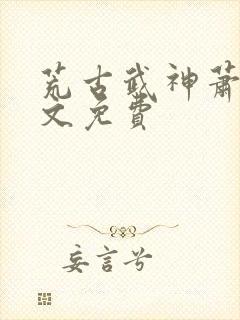 荒古武神萧
文免費
妄言兮